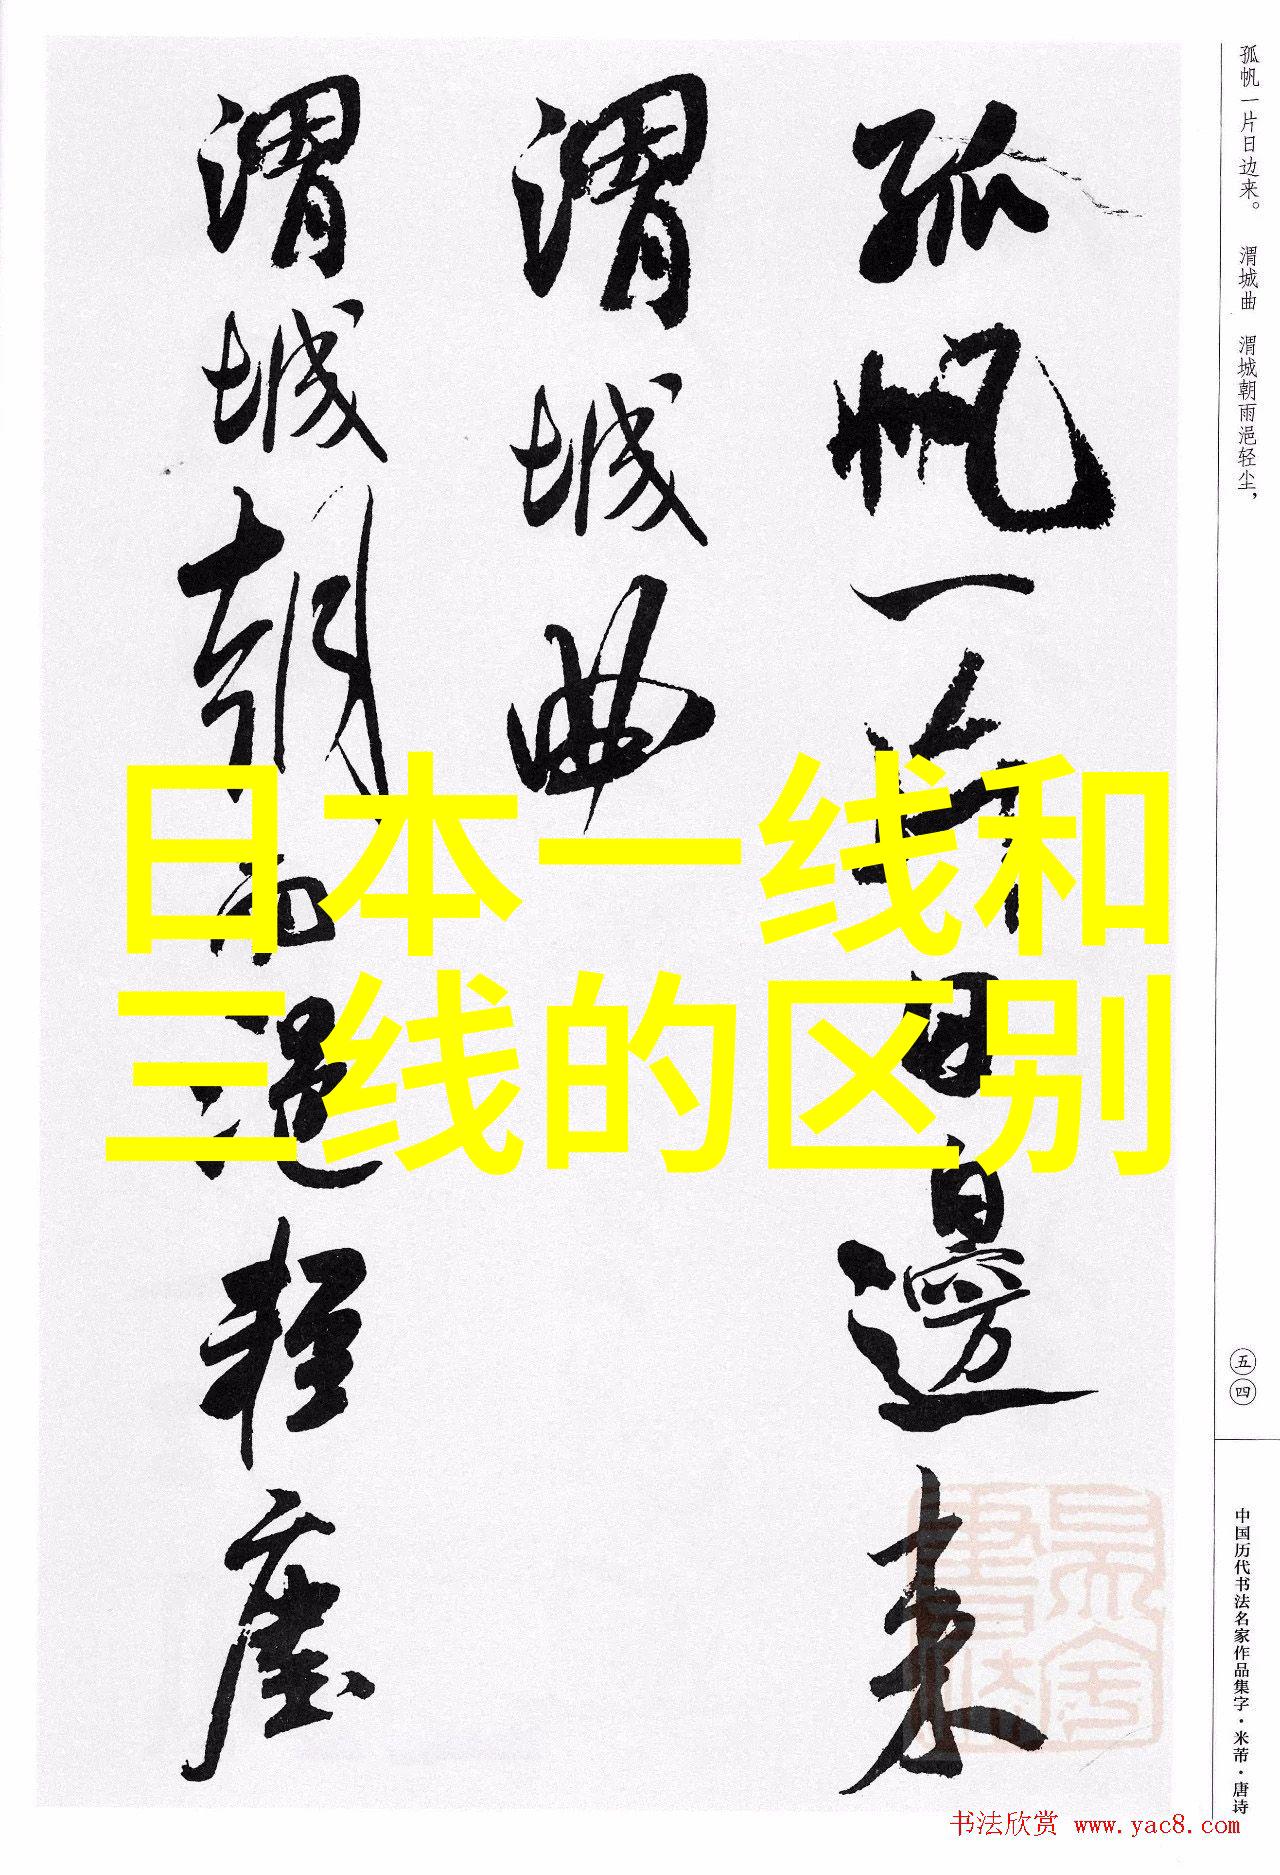 孤帆一片日边来。 渭城曲 渭城朝雨浥轻尘，
孤帆一片日邊来
渭城曲
渭城朝雨浥轻塵
日本一线和
三线的区别
五四
中国历代书法名家作品集字·米芾·唐诗
书法欣赏 www.yac8.com